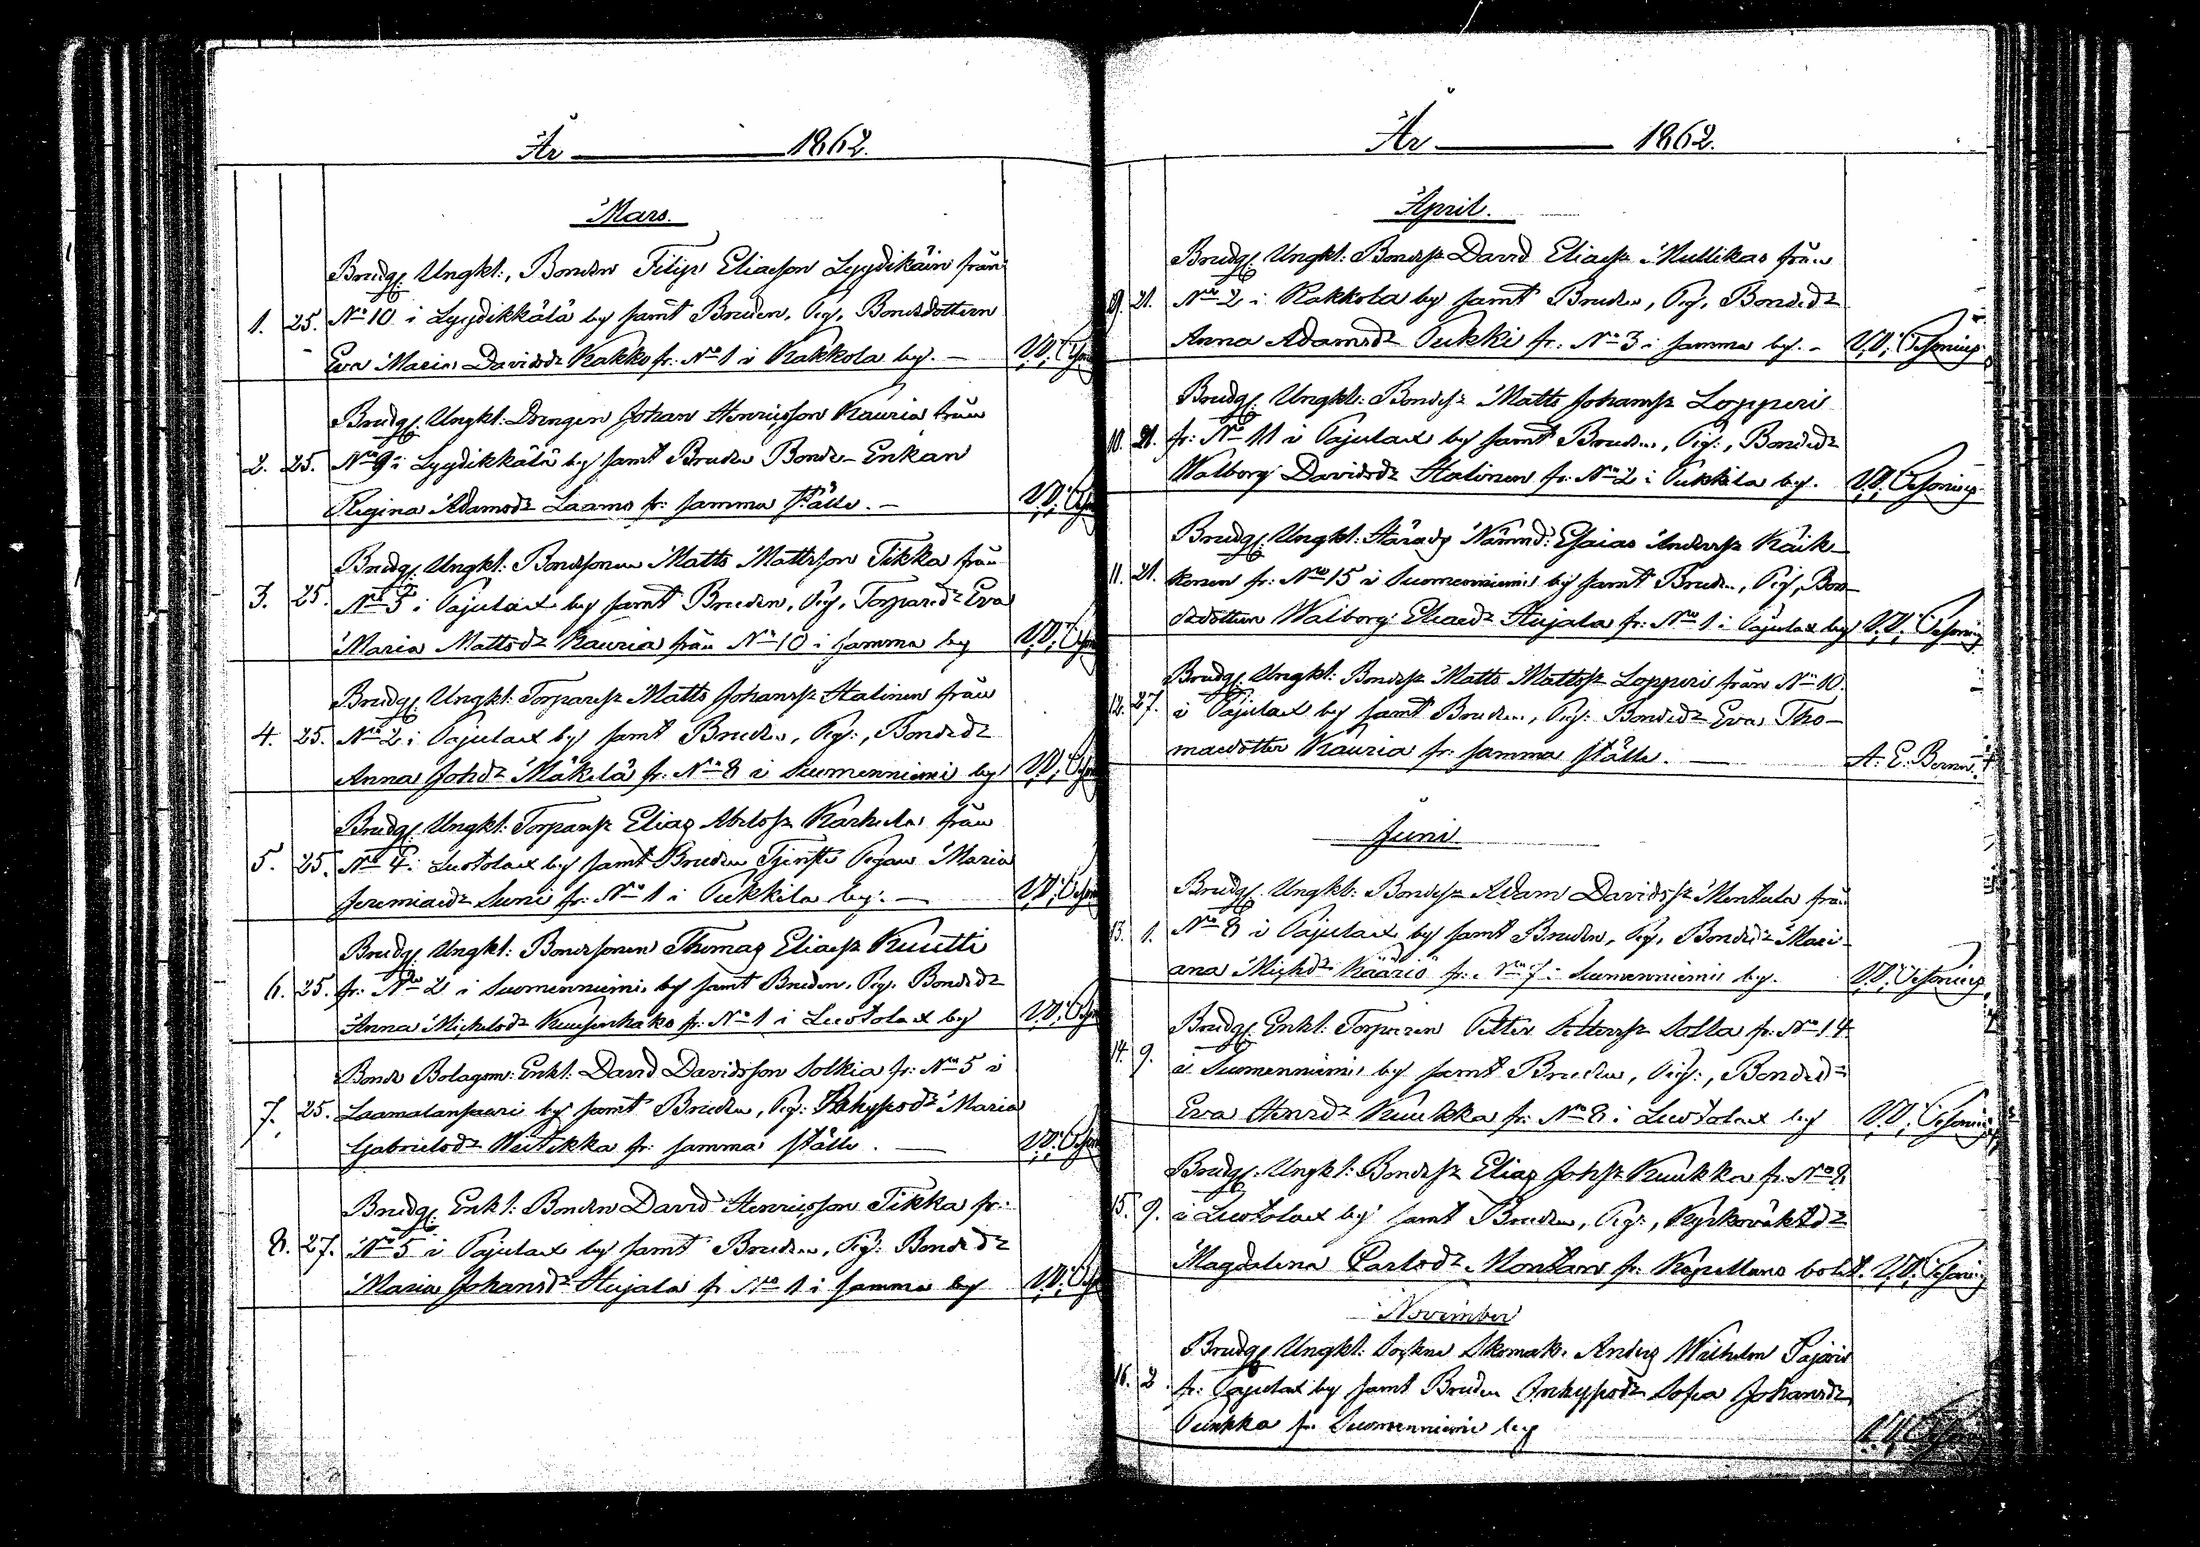 År 1862.
Mars.
Brudg. Ungkl:, Bonden Filip Eliasson Lyydikäin från
1. 25. No 10 i Lyydikkälä by samt Bruden, Pig, Bondedottern
Eva Maria Davidsdr Kakko fr: No 1 i Kakkola by. —
Brudg. Ungkl: Drengen Johan Henricsson Kauria från
2. 25. No 9 i Lyydikkälä by samt Bruden Bonde-Enkan
Regina Adamsdr Laamo fr: samma ställe. —
Brudg. Ungkl: Bondesonen Matts Mattsson Tikka från
3. 25. No 5 i Pajulax by samt Bruden, Pig, Torparedr Eva
Maria Mattsdr Kauria från No 10 i samma by
Brudg. Ungkl: Torparesr Matts Johanssr Halinen från
4. 25. No 2 i Pajulax by samt Bruden, Pig:, Bondedr
Anna Johdr Mäkelä fr: No 8 i Suomenniemi by
Brudg. Ungkl: Torparsr Elias Abelssr Karhula från
5. 25. No 4 i Luotolax by samt Bruden Tjenste Pigan Maria
Jeremiaedr Suni fr: No 1 i Pukkila by. —
Brudg. Ungkl: Bondesonen Thomas Eliassr Kuutti
6. 25. fr: No 2 i Suomenniemi by samt Bruden, Pig, Bondedr
Anna Michelsdr Kuusenhako fr: No 1 i Luotolax by
Bonde Bolagsm: Enkl: David Davidsson Solkia fr: No 5 i
7. 25. Laamalansaari by samt Bruden, Pig: Inhypsdr Maria
Gabrielsdr Weitikka fr: samma ställe. —
Brudg. Enkl: Bonden David Henricsson Tikka fr:
8. 27. No 5 i Pajulax by samt Bruden, Pig: Bondedr
Maria Johansdr Hujala fr No 1 i samma by
År 1862.
April.
Brudg. Ungkl: Bondesr David Eliassr Mullikas från
9. 21. No 2 i Kakkola by samt Bruden, Pig, Bondedr
Anna Adamsdr Pukki fr: No 3 i samma by. –
Brudg. Ungkl: Bondesr Matts Johanssr Lopperi
10. 21. fr: No 11 i Pajulax by samt Bruden, Pig:, Bondedr
Walborg Davidsdr Halinen fr: No 2 i Pukkila by.
Brudg. Ungkl: Härads Nämnd: Esaias Anderssr Räik-
11. 21. konen fr: No 15 i Suomenniemi by samt Bruden, Pig, Bon-
dedottern Walborg Eliaedr Hujala fr: No 1 i Pajulax by
Brudg. Ungkl: Bondesr Matts Mattssr Lopperi från No 10
12. 27. i Pajulax by samt Bruden, Pig: Bondedr Eva Tho-
masdotter Kauria fr: samma ställe. —
A. E. Berner.
Juni
Brudg. Ungkl: Bondesr Adam Davidssr Montula från
13. 1. No 8 i Pajulax by samt Bruden, Pig, Bondedr Mari-
ana Michdr Kääriä fr: No 7 i Suomenniemi by.
Brudg. Enkl: Torparen Petter Petterssr Solla fr: No 14
14. 9. i Suomenniemi by samt Bruden, Pig:, Bondedr
Eva Henrdr Kuukka fr: No 8 i Luotolax by
Brudg. Ungkl: Bondesr Elias Johsr Kuukka fr: No 8
15. 9. i Luotolax by samt Bruden, Pig:, Kyrkoväktdr
Magdalena Carlsdr Montara fr: Kapellans bolst.
November
Brudg. Ungkl: Sockne Skomak. Anders Wilhelm Pajari
16. 2. fr: Pajulax by samt Bruden Inhypsdr Sofia Johansdr
Pukkka fr: Suomenniemi by